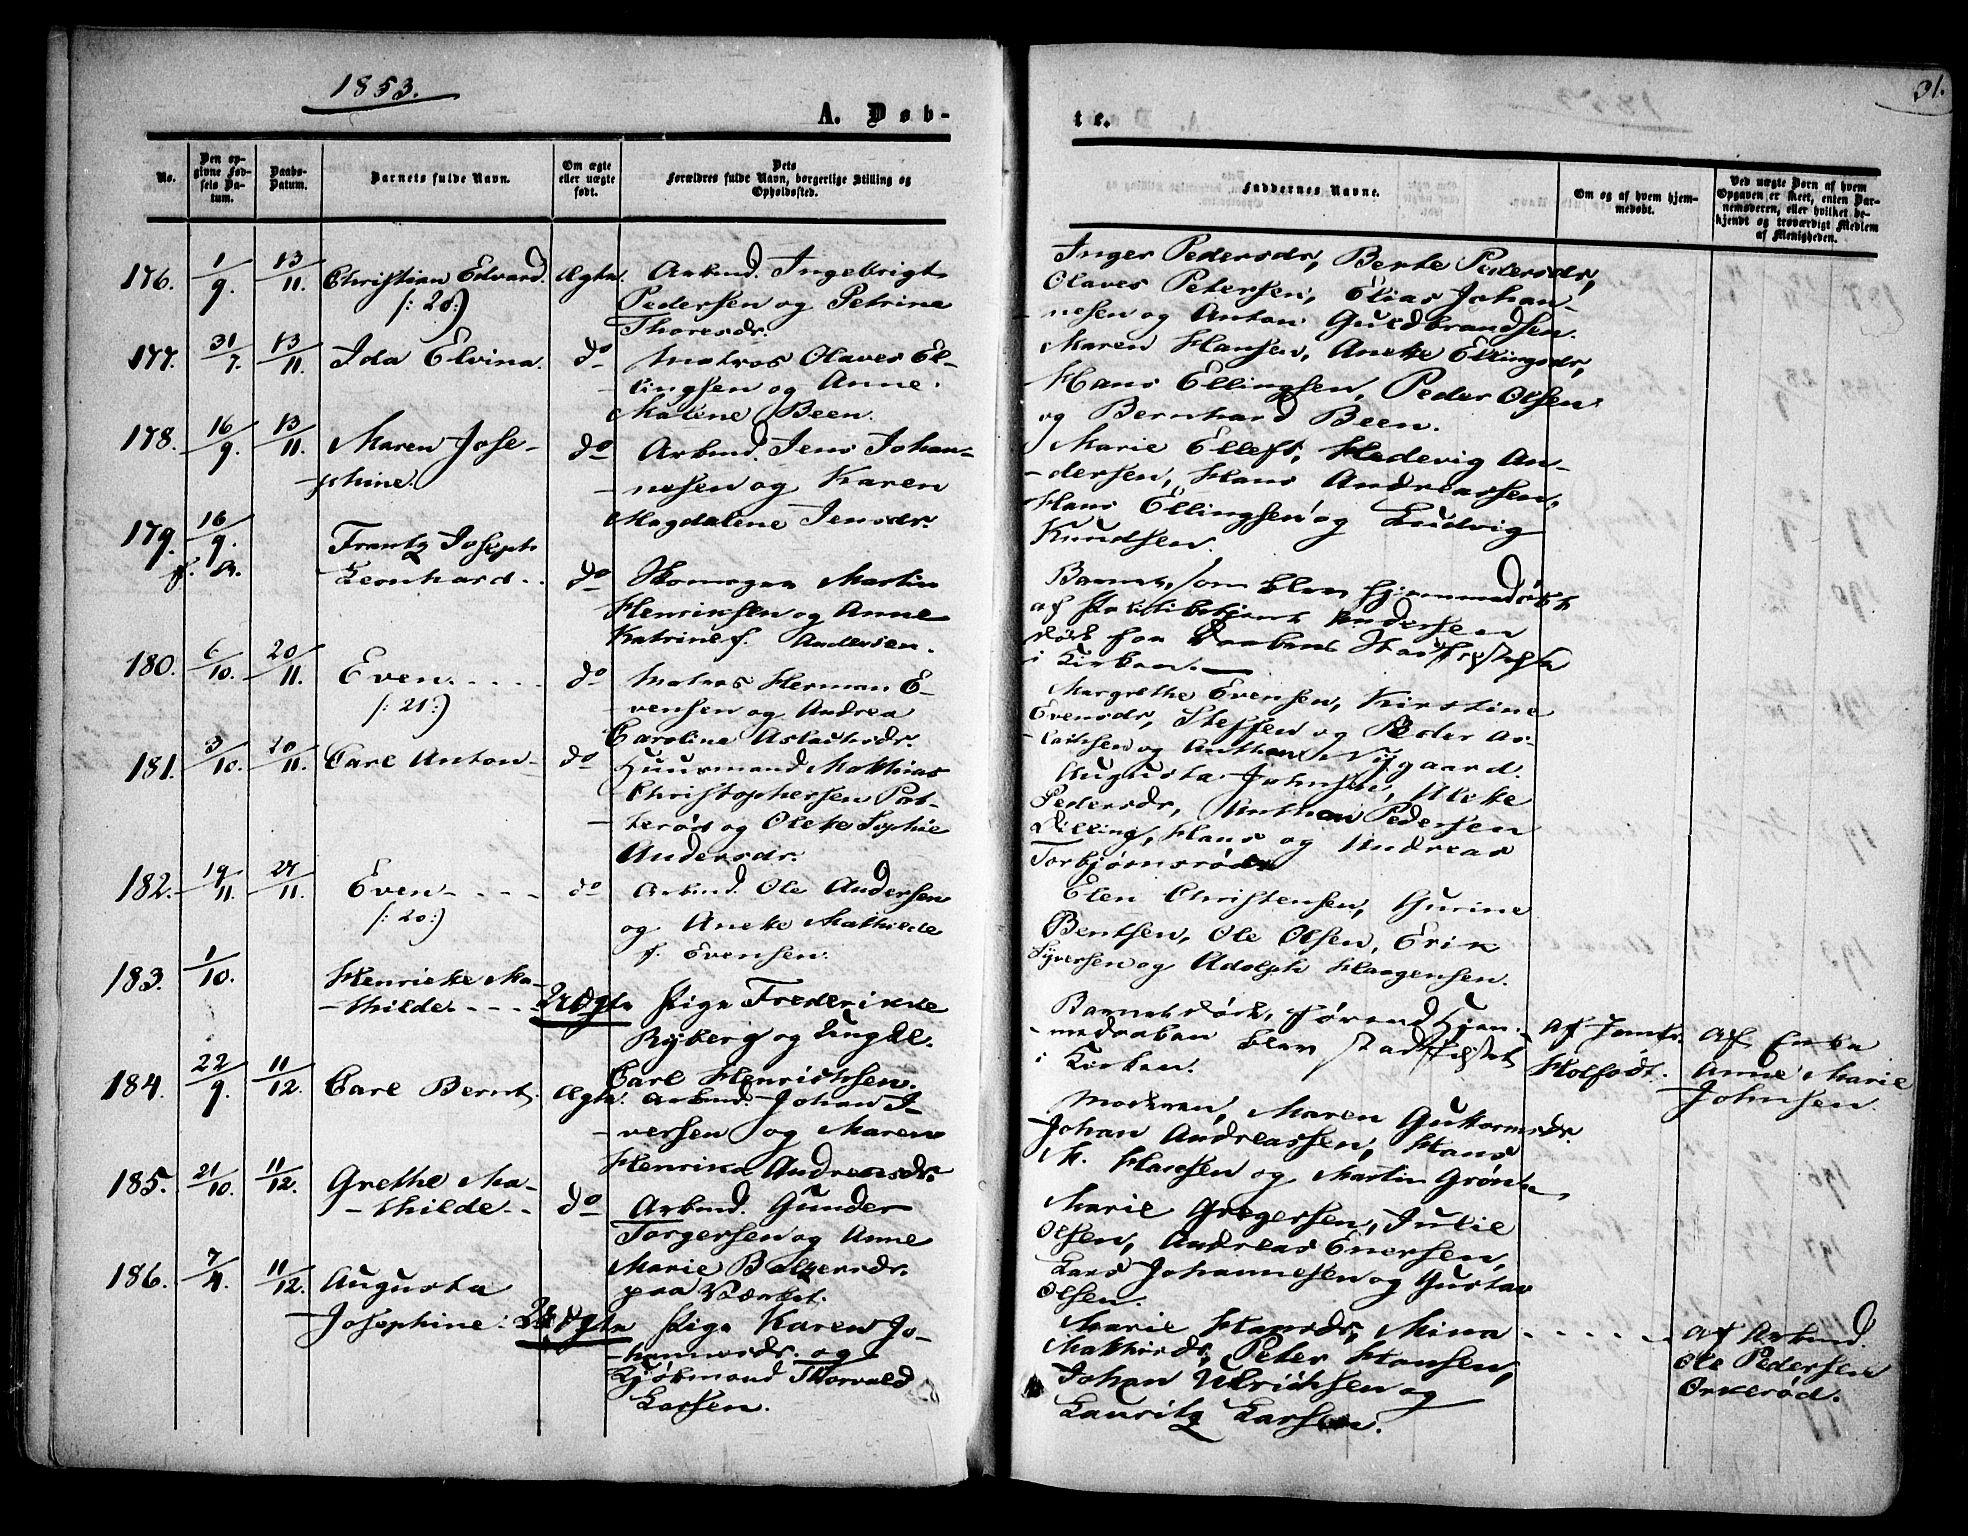 1853.
31.
A. Døb-
te.
No.
Den op-
givne Fød-
sels Da-
tum.
Daabs-
Datum.
Barnets fulde Navn.
Om ægte
eller uægte
født.
Dets
Forældres fulde Navn, borgerlige Stilling og
Opholdssted.
Faddernes Navne.
Om og af hvem hjem-
medøbt.
Ved uægte Børn af hvem
Opgaven er skeet, enten Bar-
nemoderen, eller hvilket be-
kjendt og troværdigt Medlem
af Menigheden.
176. 1/9. 13/11. Christian Edvard. Ægte. Arbmd. Ingebrigt
/: 20:/ Pedersen og Petrine
Thoresdr.
Inger Pedersdr, Berte Pedersdr,
Olaves Petersen, Elias Johan-
nesen og Anton Guldbrandsen.
177. 31/7. 13/11. Ida Elvina. do Matros Olaves El-
lingsen og Anne
Malene Been.
Maren Hansen, Anette Ellingsdr,
Hans Ellingsen, Peder Olsen
og Bernhard Been.
178. 16/9. 13/11. Maren Jose-
phine. do Arbmd. Jens Johan-
nesen og Karen
Magdalene Jensdr.
Marie Ellefs, Hedevig An-
dersen, Hans Andreassen,
Hans Ellingsen og Ludvig
Knudsen.
179. 16/9. f. A. Frantz Joseph
Leonhard.. do Skomager Martin
Henriksen og Anne
Katrine f. Andersen.
Barnet, som blev hjemmedøbt
af Politibetjent Andersen
døde før Daabens Stadfæstelse
i Kirken.
180. 6/10. 20/11. Even.... do Matros Herman E-
/: 21:/ vensen og Andrea
Caroline Aslachsdr.
Margrethe Evensen, Kirstine
Evensdr, Steffen og Peder As-
lachsen og Anthon Nygaard.
181. 3/10. 20/11. Carl Anton do Huusmand Mathias
Christophersen Pat-
terød og Oleke Sophie
Andersdr.
Augusta Johnsen, Oleke
Pedersdr, Anthon Pedersen
Dilling, Hans og Andreas
Torbjørnsrød.
182. 19/11. 27/11. Even.... do Arbmd. Ole Andersen
/: 20:/ og Anette Mathilde
f. Evensen.
Elen Christensen, Gurine
Bentsen, Ole Olsen, Erik
Syversen og Adolph Haagensen.
183. 1/10. Henriette Ma-
thilde.... Uægte Pige Frederikke
Ryberg og Ungkl.
Carl Henrichsen.
Barnet døde, førend Hjem-
medaaben blev stadfæstet
i Kirken.
af Jomfr.
Holfødt.
af Enke
Anne Marie
Johnsen.
184. 22/9. 11/12. Carl Bernt. Ægte. Arbmd. Johan I-
versen og Maren
Henrika Andreasdr.
Moderen, Maren Guttormsdr.
Johan Andreassen, Hans
M. Hansen og Martin Grønli
185. 21/10. 11/12. Grethe Ma-
thilde.. do Arbmd. Gunder
Torgersen og Anne
Marie Baltzersdr.
paa Værket.
Marie Gregersen, Julie
Olsen, Andreas Enersen,
Lars Johannesen og Gustav
Olsen.
186. 7/4. 11/12. Augusta
Josephine. Uægte Pige Karen Jo-
hannesdr. og
Kjøbmand Thorvald
Larsen.
Marie Hansdr, Mina
Mathisdr, Peter Hansen,
Johan Ulrichsen og
Lauritz Larsen.
af Arbmd.
Ole Pedersen
Orkerød.